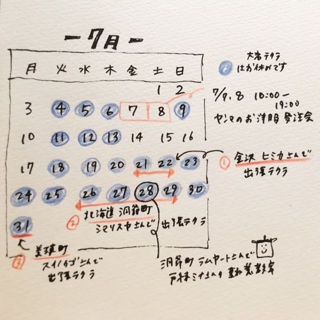 ー7月ー
月 火 水 木 金 土 日
1 2
3 4 5 6 7 8 9
10 11 12 13 14 15 16
17 18 19 20 21 22 23
24 25 26 27 28 29 30
31
はお休みです
7/7.8 10:00ー
19:00
ヤンマのお洋服 発注会
① 金沢 ヒミカさんで
出張テクラ
② 北海道 洞爺町
シマリスヤさんで 出張テクラ
③ 美瑛町
スイノカゴさんで
出張テクラ
洞爺町 ラムヤートさんで